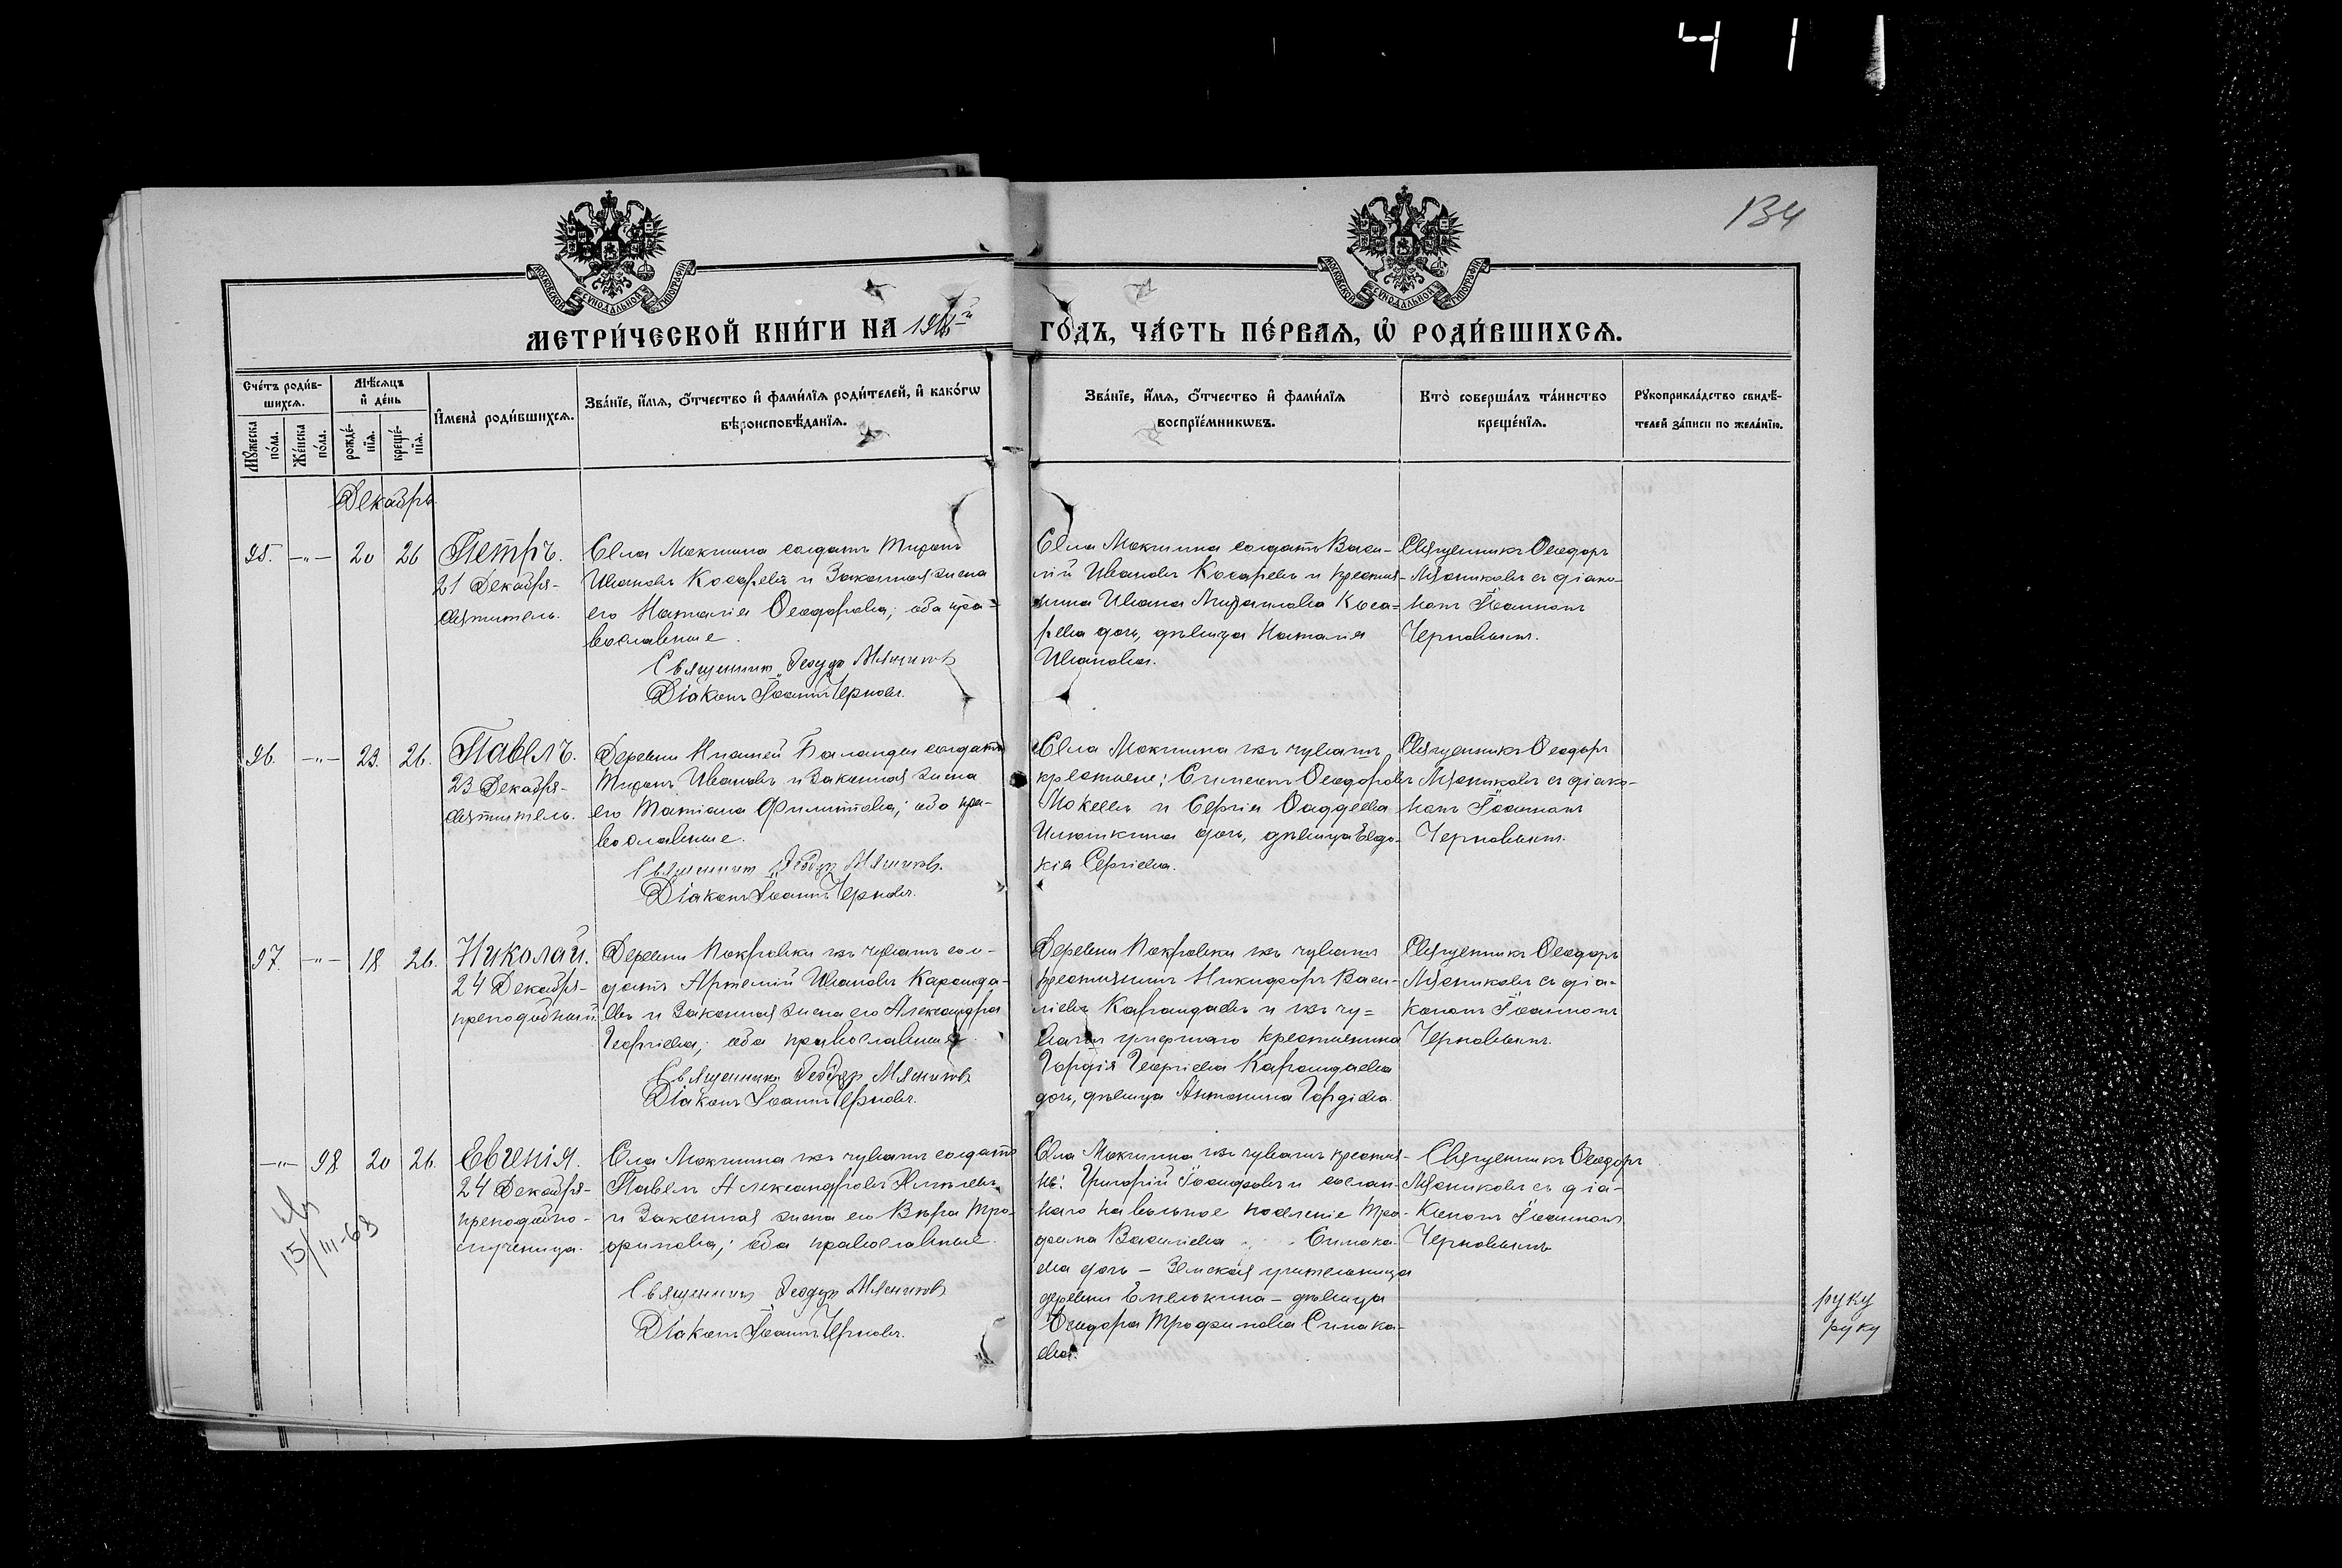 134
МОСКОВСКОЙ СѴНОДАЛЬНОЙ ТИПОГРАФІИ
МОСКОВСКОЙ СѴНОДАЛЬНОЙ ТИПОГРАФІИ
МЕТРИ́ЧЕСКОЙ КНИ́ГИ НА ГО́ДЪ, ЧА́СТЬ ПЕ́РВАЯ, Ѡ҆ РОДИ́ВШИХСЯ.
Сче́тъ роди́в-
шихся.
Мꙋ́жеска
по́ла.
Же́нска
по́ла.
Мѣ́сяцъ
и҆ де́нь
рожде́-
нїя.
креще́-
нїя.
И҆мена̀ роди́вшихся.
Зва́нїе, и҆́мя, ѻ҆́тчество и҆ фами́лїя роди́телей, и҆ како́гѡ
вѣроисповѣ́данїя.
Зва́нїе, и҆́мя, ѻ҆́тчество и҆ фами́лїя
воспрїе́мникѡвъ.
Кто̀ соверша́лъ та́инство
креще́нїя.
Рꙋкоприкла́дство свидѣ́-
телей за́писи по жела́нїю.
Декабрь
95. -"- 20 26
Петръ.
21 Декабря-
святитель.
Села Мокшина солдатъ Тихонъ
Ивановъ Косаревъ и Законная жена
его Наталія Ѳеодорова; оба пра-
вославные.
Священникъ Ѳеодоръ Мясниковъ
Діаконъ Іоаннъ Черновъ.
Села Мокшина солдатъ Васи-
лій Ивановъ Косаревъ и крестья-
нина Ивана Михаилова Коса-
рева дочь, дѣвица Наталія
Иванова.
Священникъ Ѳеодоръ
Мясниковъ съ діако-
номъ Іоанномъ
Черновымъ.
96. -"- 23. 26.
Павелъ.
23 Декабря-
святитель.
Деревни Нижней Баланды солдатъ
Тихонъ Ивановъ и Законная жена
его Татіана Филиппова; оба пра-
вославные.
Священникъ Ѳеодоръ Мясниковъ.
Діаконъ Іоаннъ Черновъ.
Села Мокшина изъ чувашъ
крестьяне: Симеонъ Ѳеодоровъ
Мокеевъ и Сергія Ѳаддеева
дочь, дѣвица Евдо-
кія Сергіева.
Священникъ Ѳеодоръ
Мясниковъ съ діако-
номъ Іоанномъ
Черновымъ.
97. -"- 18 26.
Николай.
24 Декабря-
преподобный.
Деревни Покровки изъ чувашъ сол-
датъ Артемій Ивановъ Каранда-
евъ и Законная жена его Александра
Георгіева; оба православные.
Священникъ Ѳеодоръ Мясниковъ
Діаконъ Іоаннъ Черновъ.
Деревни Покровки изъ чувашъ
крестьянинъ Никифоръ Васи-
ліевъ Карандаевъ и изъ чу=
вашъ умершаго крестьянина
Гордія Георгіева Карандаева
дочь, дѣвица Антонина Гордіева.
Священникъ Ѳеодоръ
Мясниковъ съ діа-
кономъ Іоанномъ
Черновымъ.
-"- 98 20 26.
15/III-63
Евгенія.
24 Декабря-
преподобно-
мученица.
Села Мокшина изъ чувашъ солдатъ
Павелъ Александровъ
и Законная жена его Вѣра Тро-
фимова; оба православные.
Священникъ Ѳеодоръ Мясниковъ
Діаконъ Іоаннъ Черновъ.
Села Мокшина изъ чувашъ крестья-
не: Григорій Іосифовъ и сослан-
наго на вольное поселеніе Тро-
фима Василіева Симака-
ева дочь - Земская учительница
деревни Емелькина - дѣвица
Ѳеодора Трофимова Симака-
ева.
Священникъ Ѳеодоръ
Мясниковъ съ діа-
кономъ Іоанномъ
Черновымъ
руку
руку